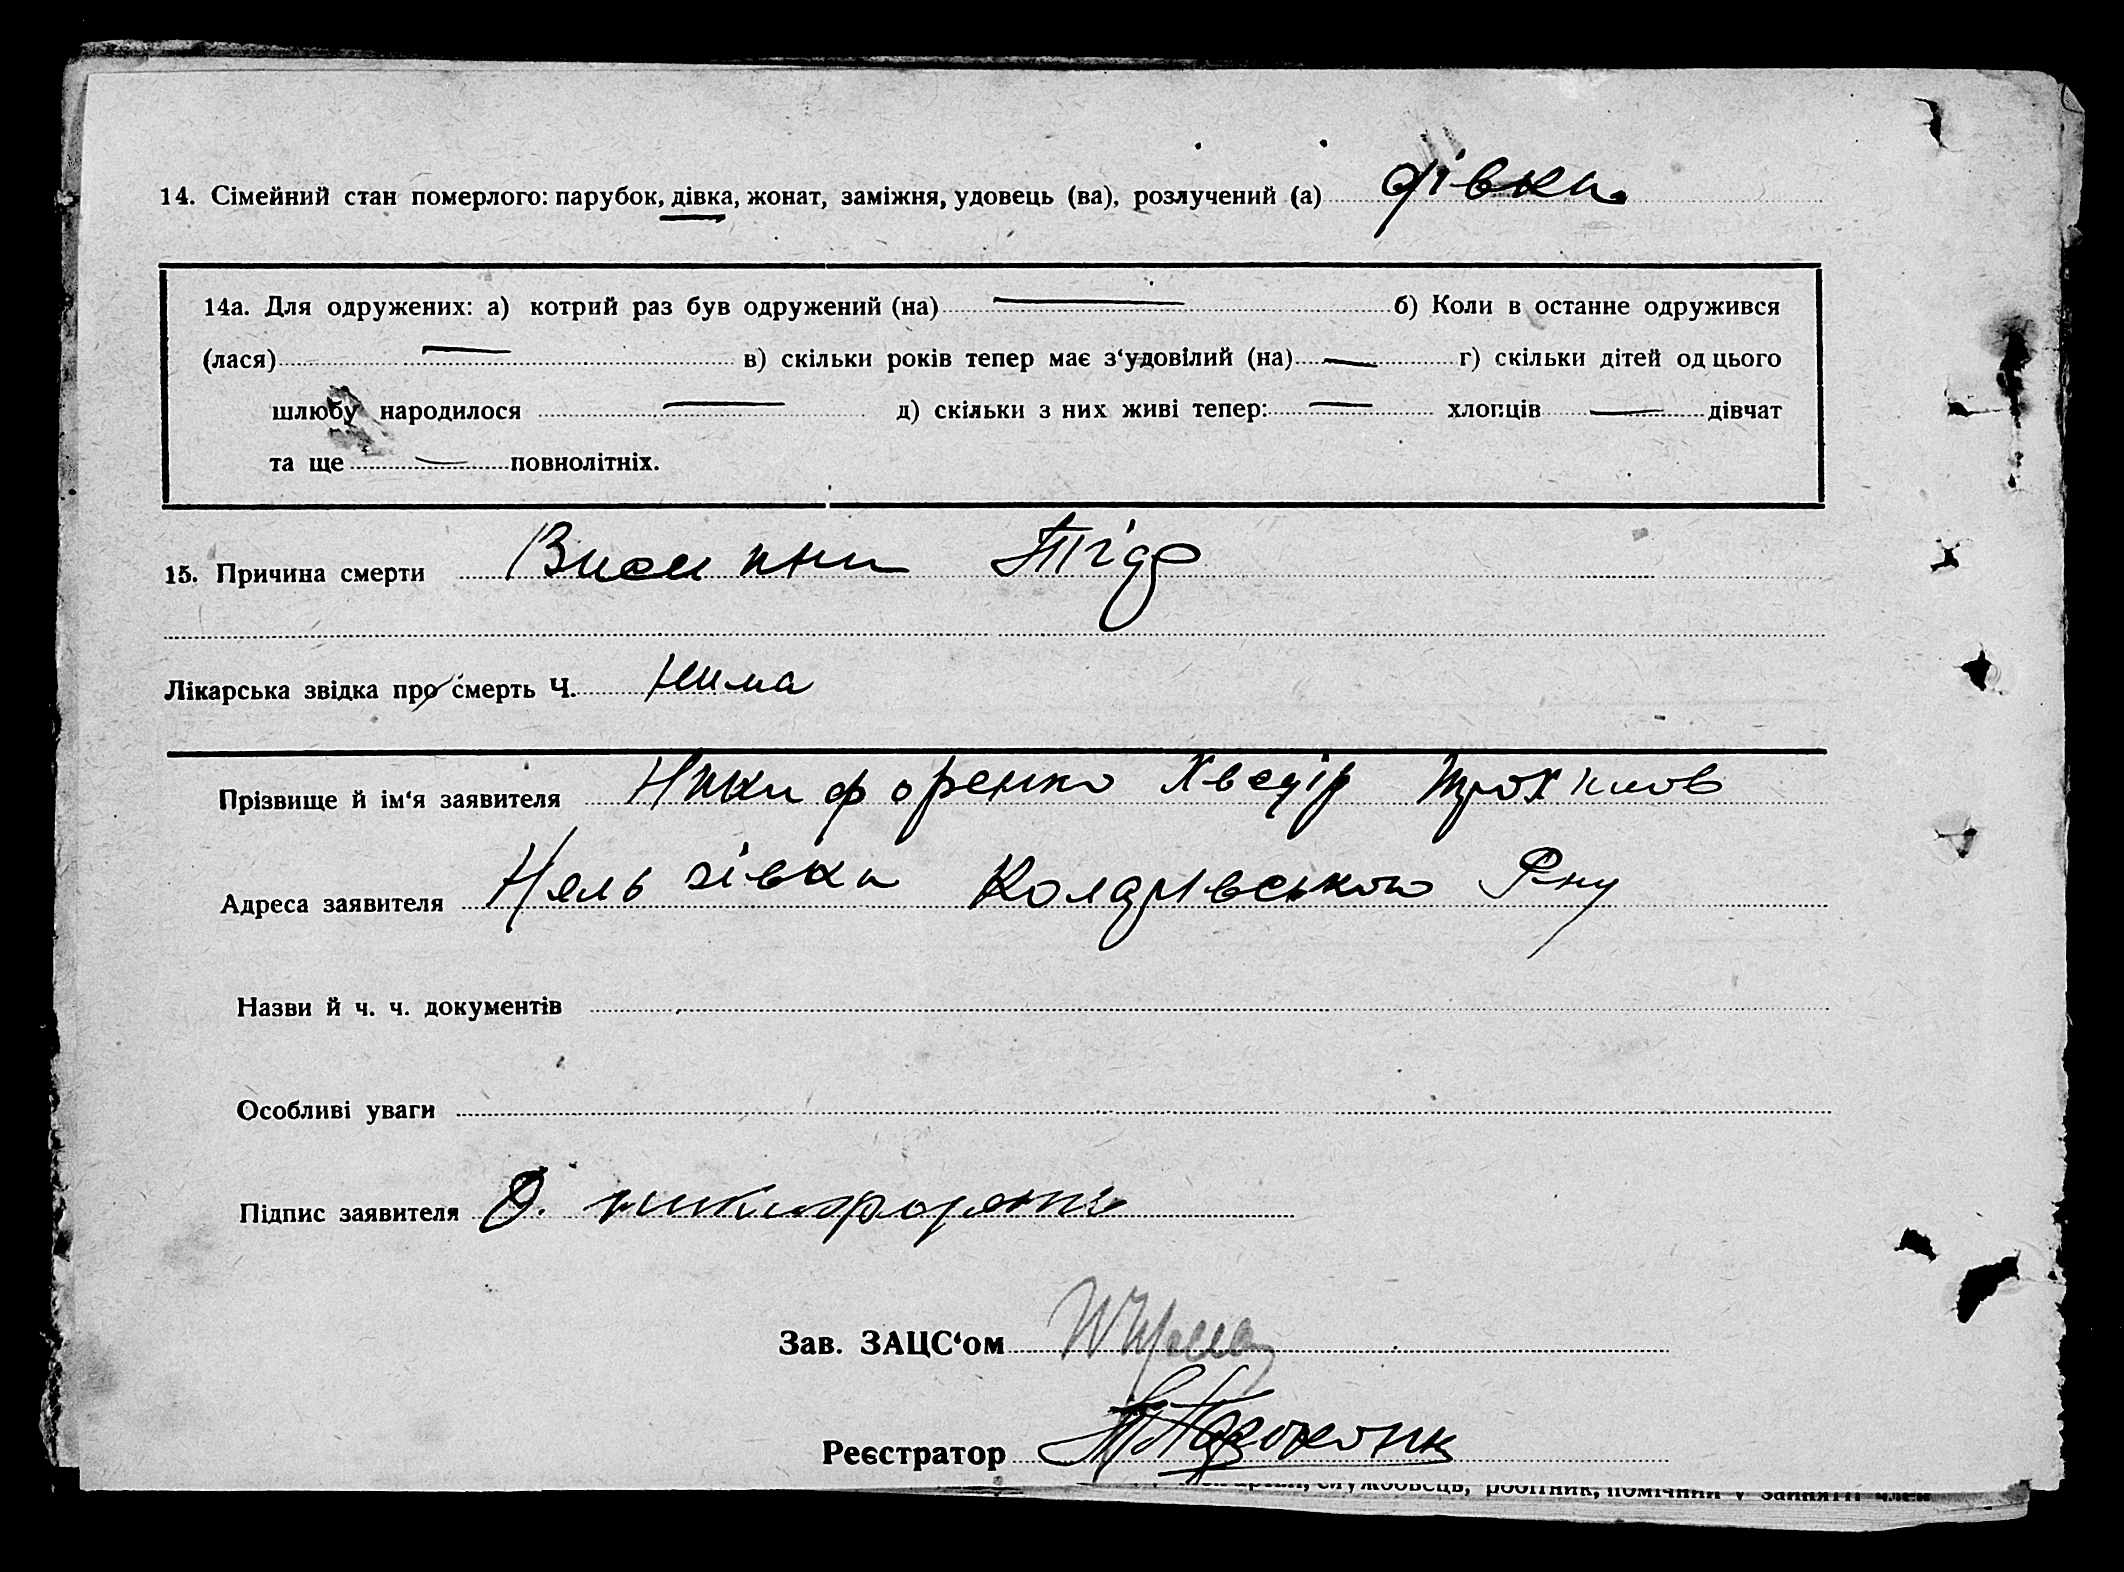 14. Сімейний стан померлого: парубок, дівка, жонат, заміжня, удовець (ва), розлучений (а) дівка
14а. Для одружених: а) котрий раз був одружений (на) б) Коли в останне одружився
(лася) в) скільки років тепер має з‘удовілий (на) г) скільки дітей од цього
шлюбу народилося д) скільки з них живі тепер: хлопців дівчат
та ще повнолітніх.
15. Причина смерти Висипни Тіф
Лікарська звідка про смерть Ч. Нима
Прізвище й ім‘я заявителя Никифоренко Хведір Трохимов
Адреса заявителя Ряну
Назви й ч. ч. документів
Особливі уваги
Підпис заявителя
Зав. ЗАЦС‘ом
Реєстратор
службовець, робітник, помічний у занятті член